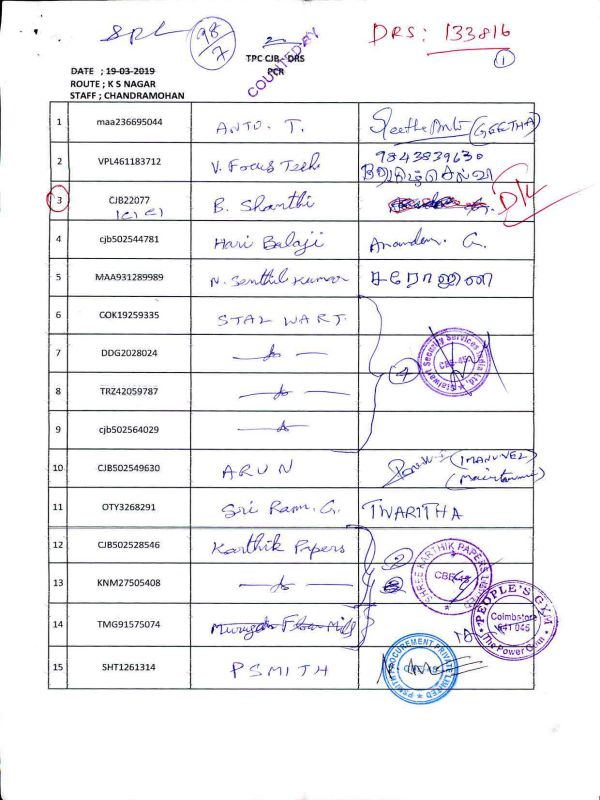 SPL
98/7
COUNTED BY
DRS: 133816
1
TPC CJB - DRS
PCR
DATE ; 19-03-2019
ROUTE ; K S NAGAR
STAFF ; CHANDRAMOHAN
1 maa236695044 ANTO. T. (GEETHA)
2 VPL461183712 V. Focus Tech 9843839630
3 CJB22077 B. Shanthi D/L
4 cjb502544781 Hari Balaji Anandan. G.
5 MAA931289989 N. Senthil Kumar சரோஜினி
6 COK19259335 STAL WART.
7 DDG2028024 — do —
8 TRZ42059787 — do —
9 cjb502564029 — do —
4
Stalwart Security Services India Ltd.
CBE-45
10 CJB502549630 ARUN (IMANUVEL)
11 OTY3268291 Sri Ram. G. TWARITHA
12 CJB502528546 Karthik Papers 2
13 KNM27505408 — do —
SHREE KARTHIK PAPERS LIMITED
CBE-45
14 TMG91575074 Murugan Flour Mill
PEOPLE'S GYM
Coimbatore
641 045
The Power Gain
15 SHT1261314 PSMITH
PSMITH PROCUREMENT PRIVATE LIMITED